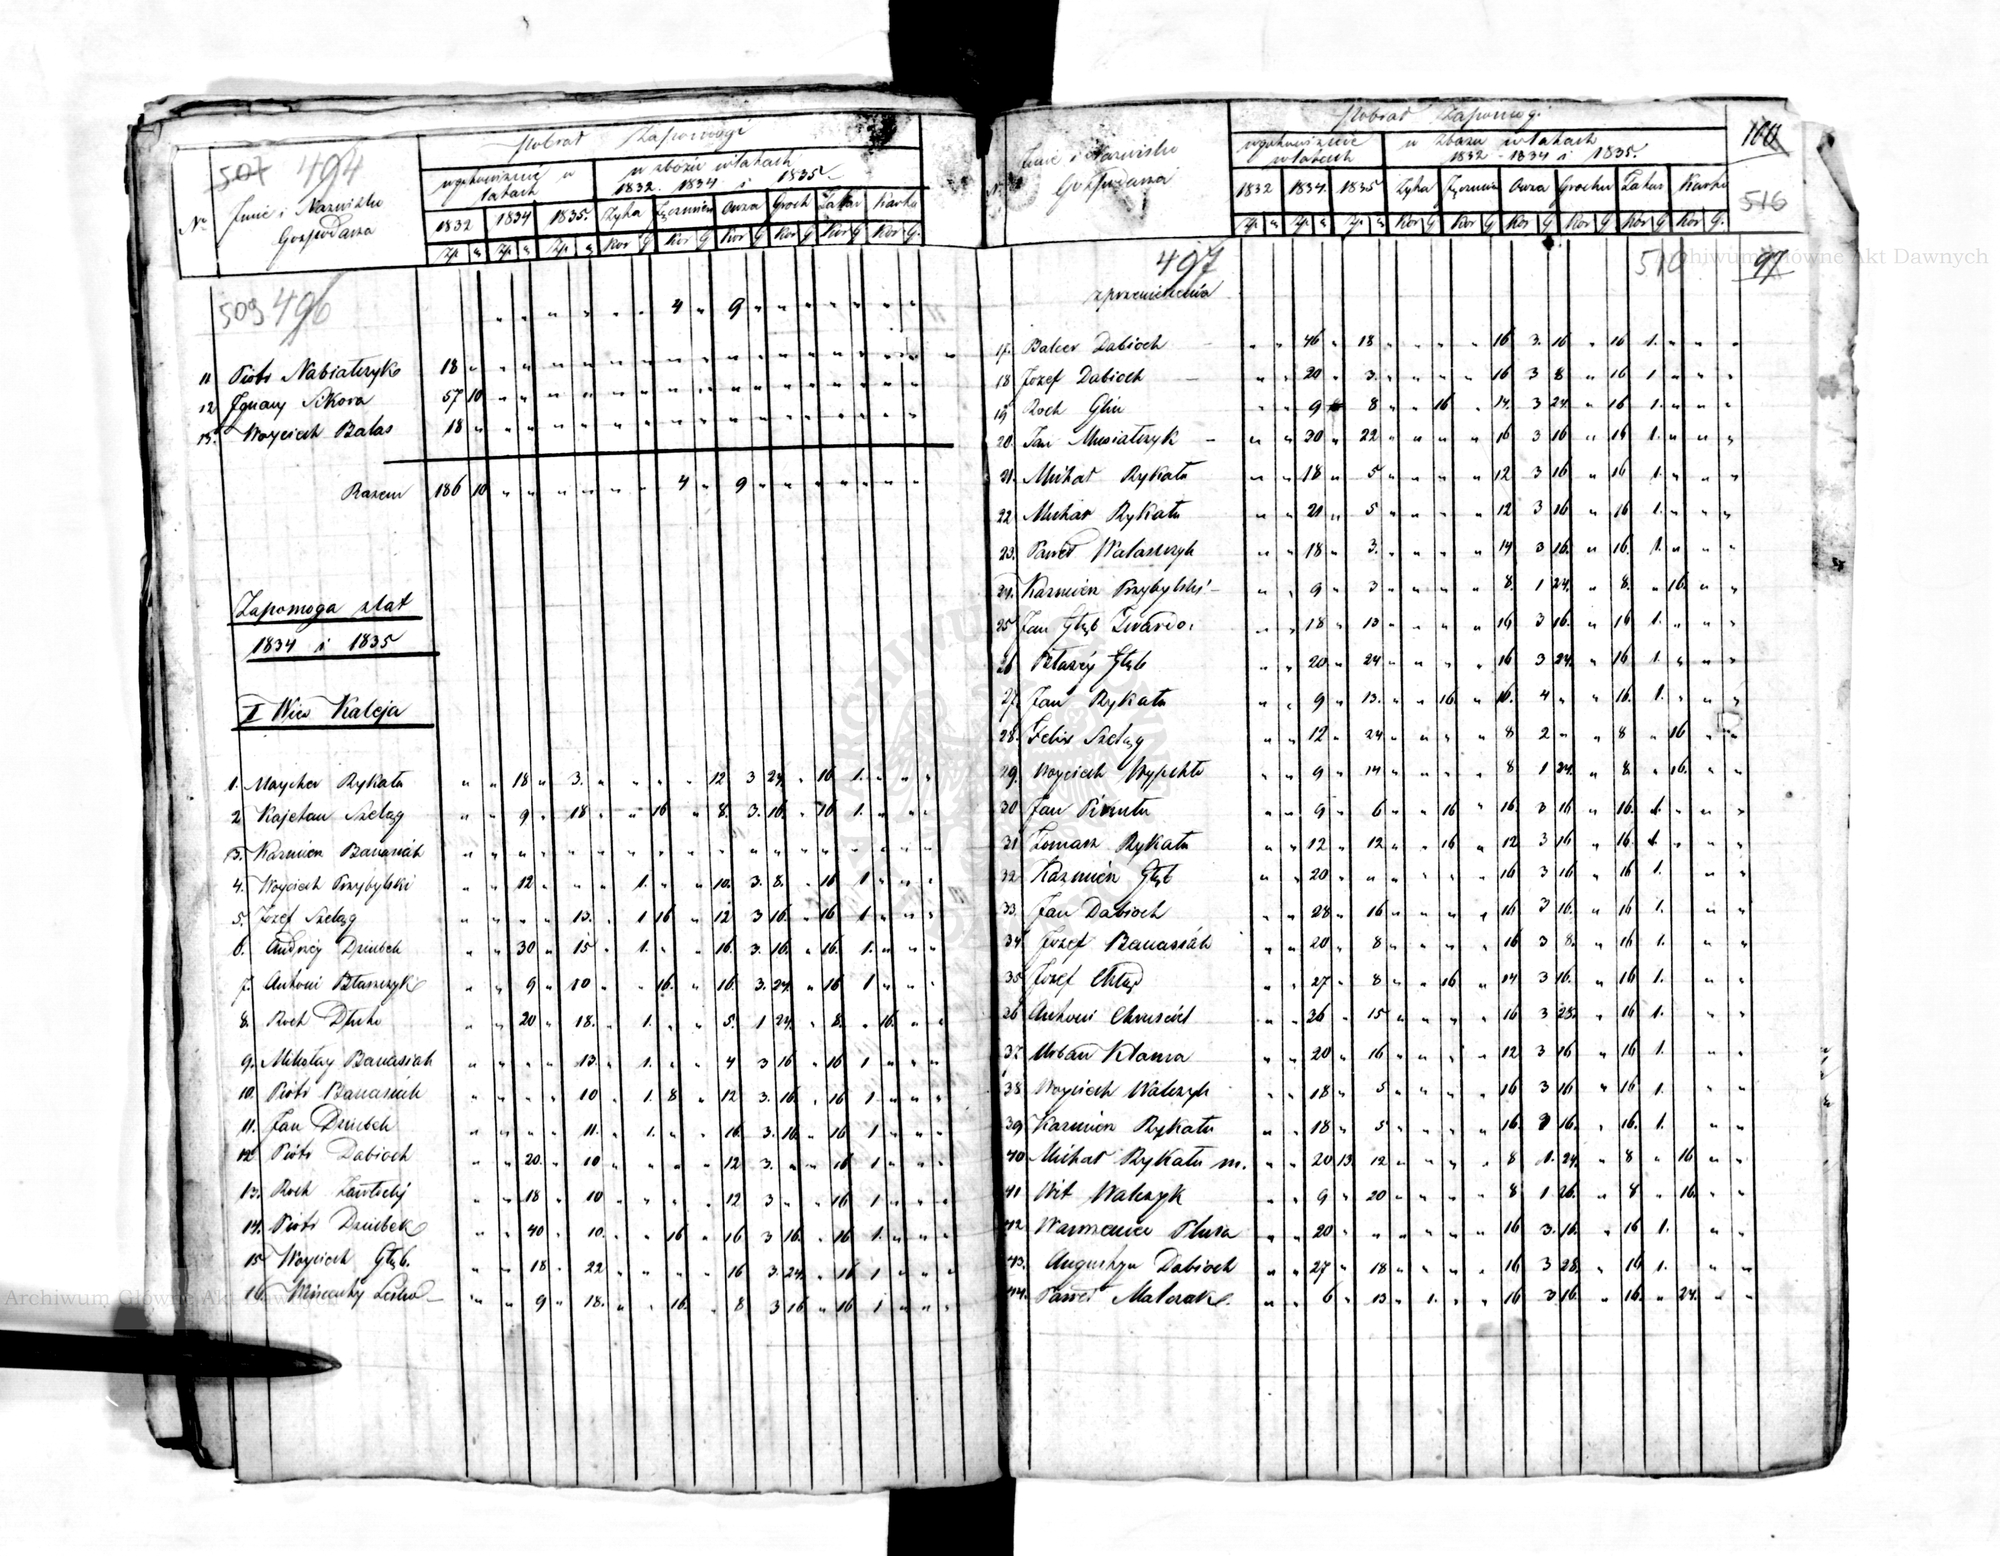 507 494
Pobrał Zapomogi
w gotowiznie w latach
w zbożu w latach
1832. 1834 i 1835.
Nr Imie i Nazwisko Gospodarza
1832 1834 1835. Żyta Jęczmien Owsa Groch Tatar Kartu
Zp. g Zp. g Zp. g Kor G Kor G Kor G Kor G Kor G Kor G.
509 496
" " " " " " 4 " 9 " " " " " " "
11 Piotr Nabiałczyk 18 " " " " " " " " " " " " " " "
12 Ignacy Sikora 57 10 " " " " " " " " " " " " " "
13. Woyciech Balas 18 " " " " " " " " " " " " " " "
Razem 186 10 " " " " " " 4 " 9 " " " " " " "
Zapomoga z lat
1834 i 1835
II Wies Kaleja
1. Maycher Rykała " " 18 " 3. " " " " 12 3 24. " 16 1. " " "
2 Kajetan Szeląg " " 9 " 18 " " 16 " 8. 3. 16. " 16 1. " " "
3. Kazmierz Banasiák " " " " " " " " " " " " " " " "
4. Woyciech Przybylski " " 12 " " " 1. " " 10. 3. 8. " 16 1 " " "
5. Józef Szeląg " " " " 13. " 1 16 " 12 3 16. " 16 1 " " "
6. Andrzey Dziubek " " 30 " 15 " 1. " " 16. 3. 16. " 16. 1. " " "
7. Antoni Błaszczyk " " 9 " 10 " " 16. " 16. 3. 24. " 16 1 " " "
8. Roch Dłuto " " 20 " 18. " 1. " " 5. 1 24. " 8. " 16. " "
9. Mikołay Banasiak " " " " 13. " 1. " " 4 3 16 " 16 1 " " "
10. Piotr Banasiak " " " " 10 " 1. 8 " 12 3. 16. " 16 1. " " "
11. Jan Dziubek " " " " 11. " 1. " " 16. 3. 16. " 16 1 " " "
12 Piotr Dabioch " " 20. " 10 " " " " 12 3. " " 16 1 " " "
13. Roch " " 18 " 10 " " " " 12 3 " " 16 1 " " "
14. Piotr Dziubek " " 40 " 10. " " 16 " 16 3 16. " 16 1. " " "
15 Woyciech Głąb. " " 18 " 22 " " " " 16 3. 24. " 16 1 " " "
16. " " 9 " 18. " " 16. " 8 3 16 " 16 1 " " "
Pobrał Zapomogi
w gotowiznie w latach
w zbożu w latach
1832 - 1834 i 1835.
100
516
N. Imie i Nazwisko Gospodarza
1832 1834. 1835 Żyta Jęczmien Owsa Grochu Tatar Kartu
Zp. g Zp. g Zp. g Kor G Kor G Kor G Kor G Kor G Kor G.
497 510 97
z przeniesienia
17. Balcer Dabioch " " 46 " 18 " " " " 16 3. 16 " 16 1. " " "
18 Jozef Dabioch " " 20 " 3. " " " " 16 3 8 " 16 1 " " "
19 Roch Glin " " 9 " 8 " " 16 " 14. 3 24. " 16 1. " " "
20. Jan Musiałczyk " " 30 " 22 " " " " 16 3 16 " 16 1. " " "
21. Michał Rykała " " 18 " 5 " " " " 12 3 16 " 16 1. " " "
22 Michał Rykała " " 21 " 5 " " " " 12 3 16 " 16 1. " " "
23. Paweł Walaszczyk " " 18 " 3. " " " " 14 3 16. " 16. 1. " " "
24. Kazmierz Przybylski " " 9 " 3 " " " " 8. 1 24. " 8. " 16. " "
25 Jan Głąb " " 18 " 13 " " " " 16 3 16. " 16 1. " " "
26 Błazéy Głąb " " 20. " 24 " " " " 16 3 24. " 16 1. " " "
27. Jan Rykała " " 9 " 13. " " 16. " 16. 4 " " 16. 1. " " "
28. Felix Szeląg " " 12 " 24 " " " " 8 2 " " 8 " 16 " "
29. Woyciech Wypchło " " 9 " 14 " " " " 8 1 24. " 8. " 16. " "
30 Jan " " 9 " 6 " " 16 " 16. 3 16 " 16. 1. " " "
31 Tomasz Rykała " " 12 " 12 " " 16 " 12 3 16 " 16. 1. " " "
32. Kazmierz Głąb " " 20 " " " " " " 16 3 16 " 16 1. " "
33. Jan Dabioch " " 28 " 16 " " " " 16 3 16. " 16 1. " "
34 Jozef Banasiák " " 20 " 8 " " " " 16 3 8. " 16 1. " "
35 Jozef Chłąd " " 27 " 8 " " 16 " 14 3 16. " 16 1. " "
36 Antoni Chruściel " " 26 " 15 " " " " 16 3 28. " 16 1. " "
37. Urban Klama " " 20 " 16 " " " " 12 3 16 " 16 1. " "
38 Woyciech Walczyk " " 18 " 5 " " " " 16 3 16 " 16 1. " "
39 Kazmierz Rykała " " 18 " 5 " " " " 16. 3 16. " 16. 1. " "
40 Michał Rykała m. " " 20 13. 12 " " " " 8 1. 24. " 8 " 16 " "
41 Wit Walczyk " " 9 " 20 " " " " 8 1 26. " 8 " 16. " "
42. Wawrzeniec Plusa " " 20 " " " " " " 16 3. 16. " 16 1. " "
43. Augustyn Dabioch " " 27 " 18 " " " " 16 3 28. " 16 1. " "
44. Paweł Matorak. " " 6 " 13 " 1. " " 16 3 16. " 16. " 24. " "
Archiwum Główne Akt Dawnych
Archiwum Główne Akt Dawnych